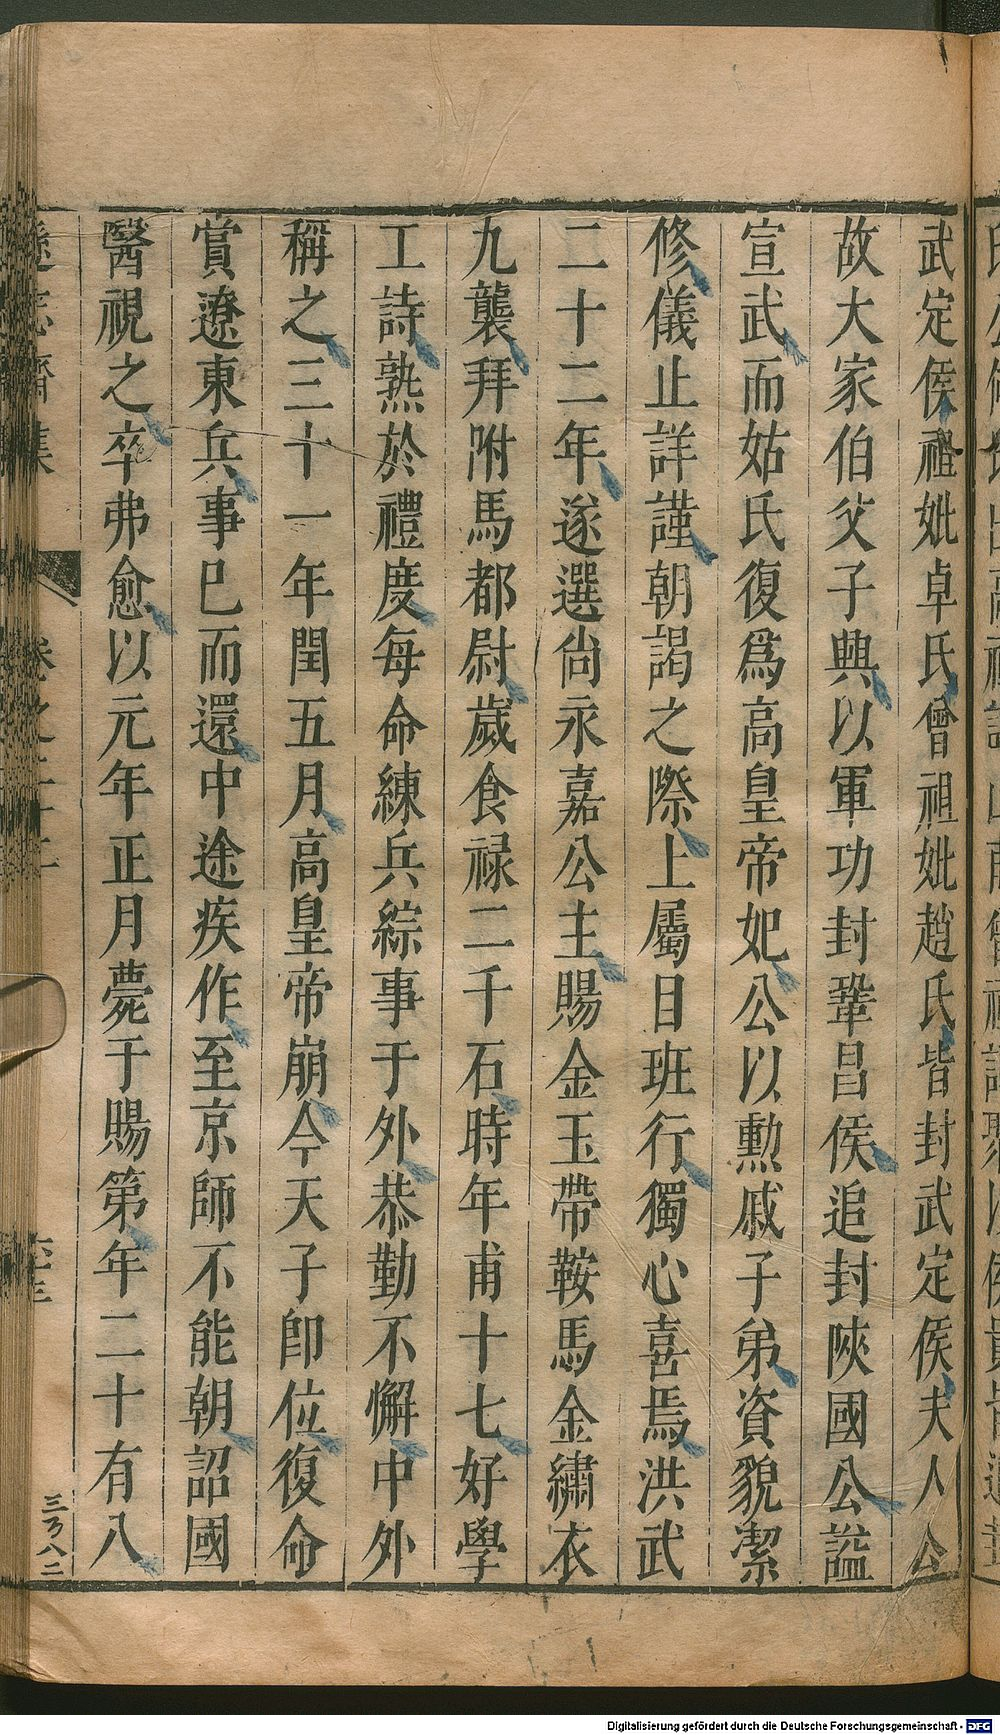 武定侯祖妣卓氏曾祖妣趙氏皆封武定侯夫人公
故大家伯父子興以軍功封鞏昌侯追封陜國公謚
宣武而姑氏復爲高皇帝妃公以勲戚子弟資貌潔
修儀止詳謹朝謁之際上屬目班行獨心喜焉洪武
二十二年遂選尙永嘉公主賜金玉帶鞍馬金繡衣
九襲拜附馬都尉歲食禄二千石時年甫十七好學
工詩熟於禮度每命練兵綜事于外恭勤不懈中外
稱之三十一年閏五月高皇帝崩今天子卽位復命
賞遼東兵事已而還中途疾作至京師不能朝詔國
醫視之卒弗愈以元年正月薨于賜第年二十有八
遜志齋集
卷之二十二
三百八二
Digitalisierung gefördert durch die Deutsche Forschungsgemeinschaft - DFG